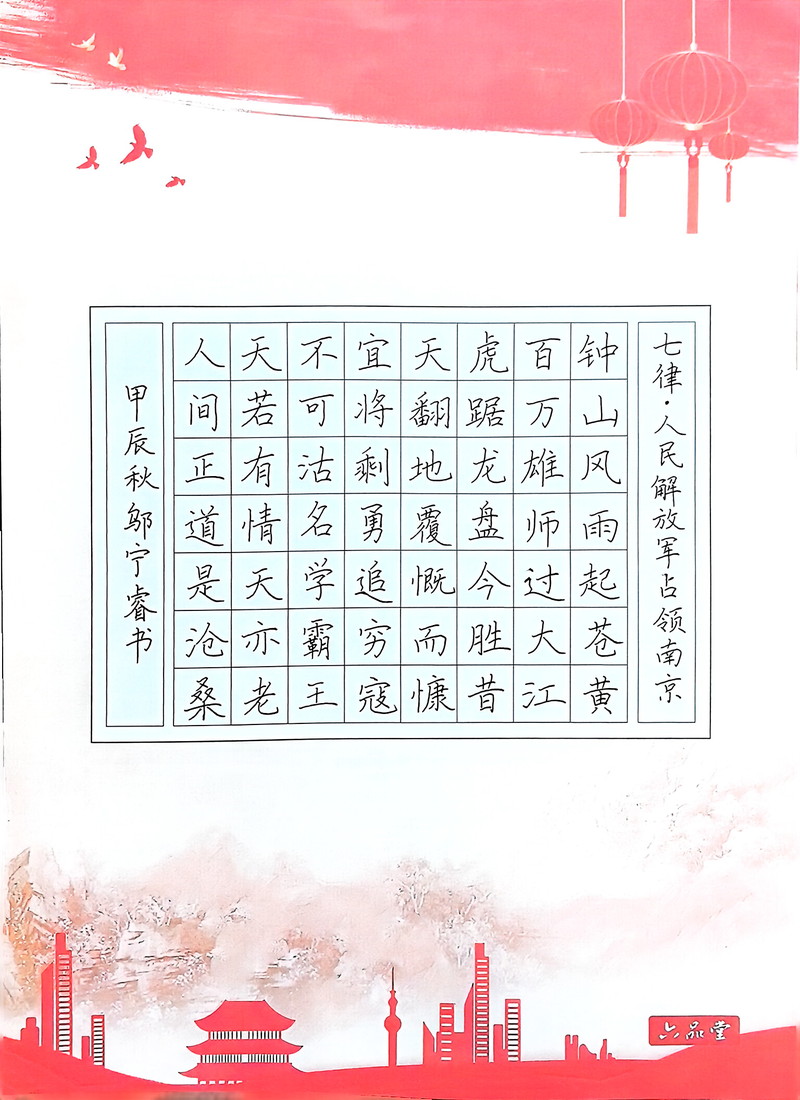 七律·人民解放军占领南京
钟山风雨起苍黄
百万雄师过大江
虎踞龙盘今胜昔
天翻地覆慨而慷
宜将剩勇追穷寇
不可沽名学霸王
天若有情天亦老
人间正道是沧桑
甲辰秋邬宁睿书
六品堂